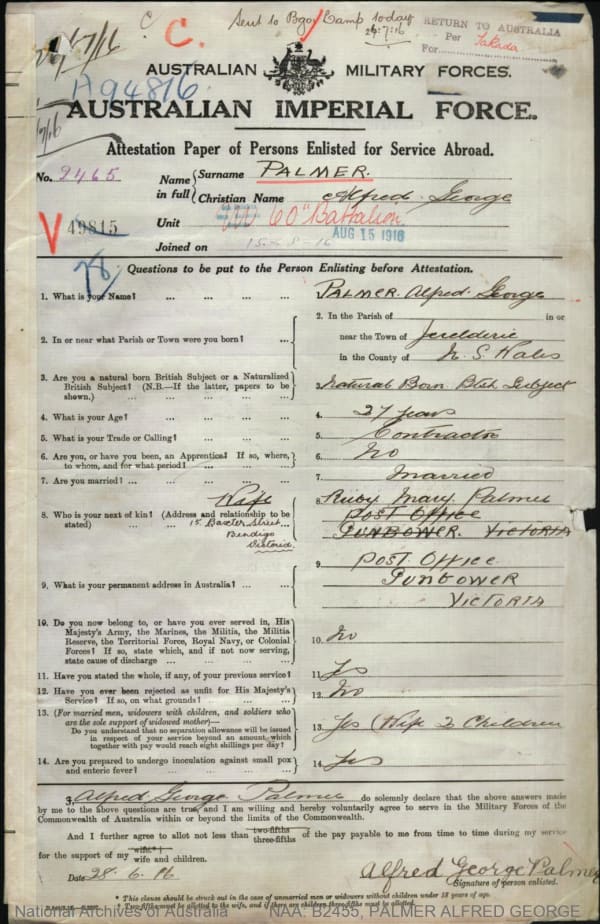 C
C.
Sent to Bgo Camp today
26:7:16
RETURN TO AUSTRALIA
Per Takada
For
/7/16
A94816
AUSTRALIAN MILITARY FORCES.
AUSTRALIAN IMPERIAL FORCE.
Attestation Paper of Persons Enlisted for Service Abroad.
No. 2465
Name in full { Surname PALMER.
Christian Name Alfred George
V 49815
Unit 60th Battalion
AUG 15 1916
Joined on 15-8-16
Questions to be put to the Person Enlisting before Attestation.
1. What is your Name? ... ... ... ... PALMER. Alfred. George
2. In or near what Parish or Town were you born? ... ... 2. In the Parish of in or
near the Town of Jerelderie
in the County of N. S. Wales
3. Are you a natural born British Subject or a Naturalized
British Subject? (N.B.—If the latter, papers to be
shown.) ... ... ... ... 3. Natural Born Btsh Subject
4. What is your Age? ... ... ... ... 4. 27 years
5. What is your Trade or Calling? ... ... ... 5. Contractor
6. Are you, or have you been, an Apprentice? If so, where,
to whom, and for what period? ... ... 6. No
7. Are you married? ... ... ... ... 7. Married
8. Who is your next of kin? (Address and relationship to be
stated) Wife 15 Baxter Street
Bendigo
Victoria.
8. Ruby Mary Palmer
POST OFFICE
GUNBOWER. VICTORIA
9. What is your permanent address in Australia? ... ... 9. POST. OFFICE.
GUNBOWER
VICTORIA
10. Do you now belong to, or have you ever served in, His
Majesty's Army, the Marines, the Militia, the Militia
Reserve, the Territorial Force, Royal Navy, or Colonial
Forces? If so, state which, and if not now serving,
state cause of discharge ... ... ... 10. No
11. Have you stated the whole, if any, of your previous service? 11. Yes
12. Have you ever been rejected as unfit for His Majesty's
Service? If so, on what grounds? ... ... 12. No
13. (For married men, widowers with children, and soldiers who
are the sole support of widowed mother)—
Do you understand that no separation allowance will be issued
in respect of your service beyond an amount which
together with pay would reach eight shillings per day? 13. Yes (Wife 2 Children
14. Are you prepared to undergo inoculation against small pox
and enteric fever? ... ... ... ... 14. Yes
I, Alfred George Palmer do solemnly declare that the above answers made
by me to the above questions are true, and I am willing and hereby voluntarily agree to serve in the Military Forces of the
Commonwealth of Australia within or beyond the limits of the Commonwealth.
And I further agree to allot not less than two-fifths three-fifths of the pay payable to me from time to time during my service
for the support of my wife* wife and children.
Date 28.6.16
Alfred George Palmer
Signature of person enlisted.
* This clause should be struck out in the case of unmarried men or widowers without children under 18 years of age.
† Two-fifths must be allotted to the wife, and if there are children three-fifths must be allotted.
National Archives of Australia
NAA: B2455, PALMER ALFRED GEORGE